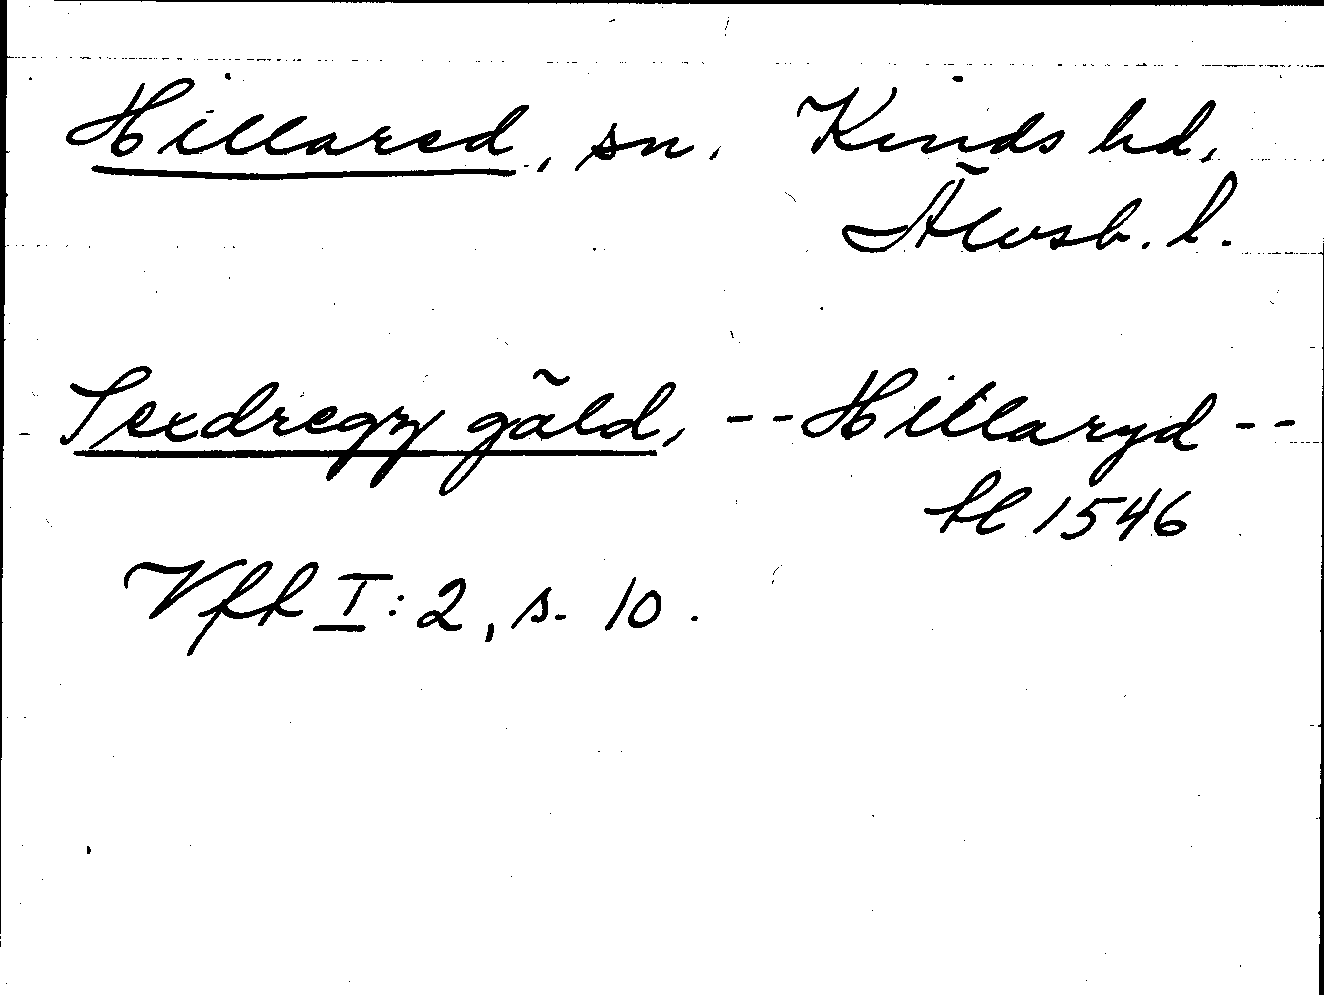 Hillared, sn. Kinds hd,
Älvsb. l.
Sexdregz gäld, -- Hillaryd --
1546
I:2, s. 10.